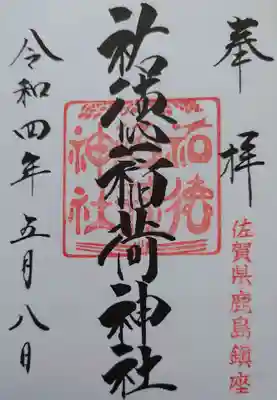 奉拝
佐賀県鹿島鎮座
祐徳稲荷神社
祐徳
神社
令和四年五月八日